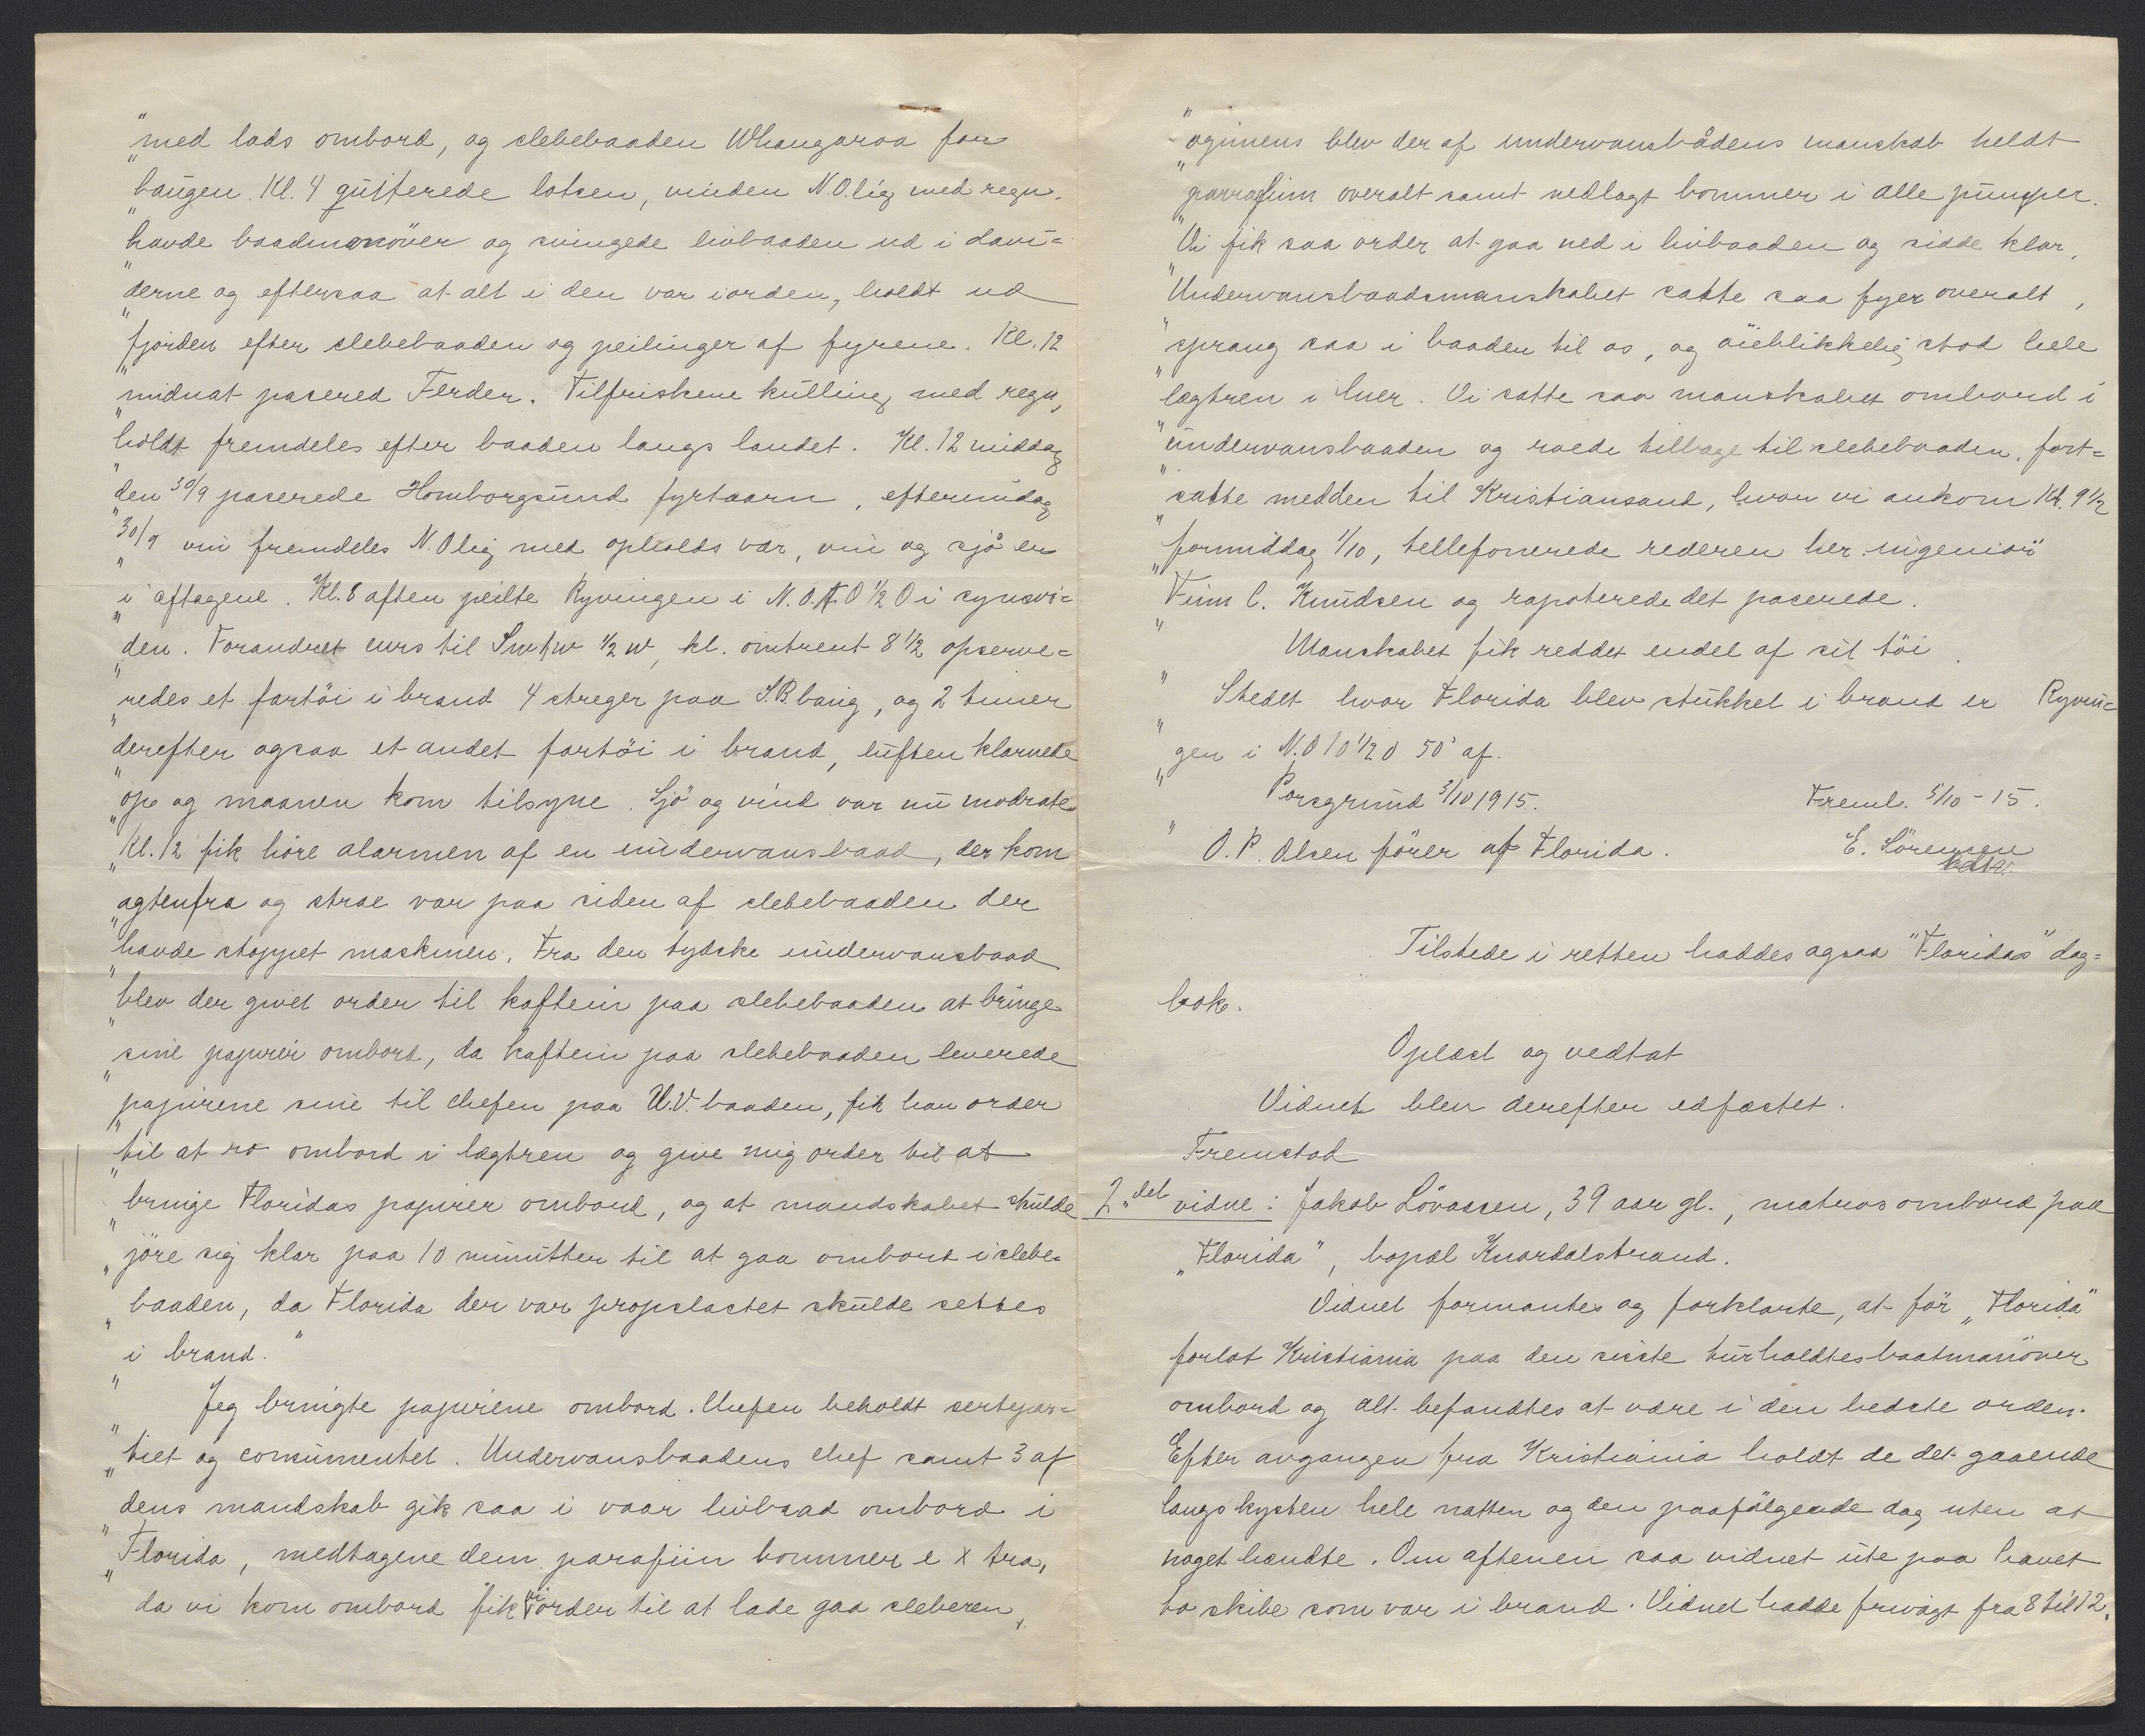 "med lods ombord, og slebebaaden Whangaroa for
"baugen. Kl. 4 quitterede lotsen, vinden N.O.lig med regn.
"havde baadmanöver og svingede livbaaden ud i davi=
"derne og eftersaa at alt i den var iorden, holdt ud
"fjorden efter slebebaaden og peilinger af fyrene. Kl. 12
"midnat pasered Ferder. Tilfriskene kulling med regn,
"holdt fremdeles efter baaden langs landet. Kl. 12 middag
"den 30/9 paserede Homborgsund fyrtaarn, eftermidag
"30/9 vin fremdeles N.Olig med opholds vær, vin og sjö er
"i aftagene. Kl. 8 aften peilte Ryvingen i N.O.t.O ½ O i synsvi=
"den. Forandret curs til Swtw ½ w, kl. omtrent 8 ½ opserve=
"redes et fartöi i brand 4 streger paa S.B. baug, og 2 timer
"derefter ogsaa et andet fartöi i brand, luften klarnede
"op og maanen kom tilsyne. Sjö og vind var nu modrate
"Kl. 12 fik höre alarmen af en undervansbaad, der kom
"agtenfra og strae var paa siden af slebebaaden der
"havde stoppet maskinen. Fra den tydske undervansbaad
"blev der givet order til kaftein paa slebebaaden at bringe
"sine papirer ombord, da kaftein paa slebebaaden leverede
"papirene sine til chefen paa U.V. baaden, fik han order
"til at ro ombord i lægtren og give mig order til at
"bringe Floridas papirer ombord, og at mandskabet skulde
"jöre sig klar paa 10 minutter til at gaa ombord i slebe=
"baaden, da Florida der var propslastet skulde settes
"i brand."
"Jeg bringte papirene ombord. Chefen beholdt sertepar=
"tiet og consumentet. Undervansbaadens chef samt 3 af
"dens mandskab gik saa i vaar livbaad ombord i
"Florida, medtagene dem parafiin bommer e x tra,
da vi kom ombord fik vi order til at lade gaa sleberen,
"ogimens blev der af undervansbådens manskab heldt
"parrafiim overalt samt nedlagt bommer i alle pumper.
"Vi fik saa order at gaa ned i livbaaden og sidde klar,
"Undervansbaadsmanskabet satte saa fyer overalt,
"sprang saa i baaden til os, og öieblikkelig stod hele
"lægtren i luer. Vi satte saa manskabet ombord i
"undervansbaaden og roede tilbage til slebebaaden, fort=
"satte medden til Kristiansand, hvor vi ankom Kl. 9 ½
"formiddag 1/10, tellefonerede rederen her. ingeniör
"Finn C. Knudsen og rapoterede det paserede.
"Manskabet fik reddet endel af sit töi.
"Stedet hvor Florida blev stukket i brand er Ryvin=
"gen i N.O t O ½ O 50' af.
Porsgrund 3/10 1915. Freml. 5/10 - 15.
"O.P. Olsen förer af Florida. E. Sörensen
Tilstede i retten haddes ogsaa "Floridas" dag=
bok.
Oplæst og vedtat
Vidnet blev derefter edfæstet.
Fremstod
2det vidne: Jakob Lövassen, 39 aar gl., matros ombord paa
"Florida", bopæl Knardalstrand.
Vidnet formantes og forklarte, at för "Florida"
forlot Kristiania paa den sisste tur holdtes baatmanöver
ombord og alt befandtes at være i den bedste orden.
Efter avgangen fra Kristiania holdt de det gaaende
langs kysten hele natten og den paafölgende dag uten at
noget hændte. Om aftenen saa vidnet ute paa havet
to skibe som var i brand. Vidnet hadde frivagt fra 8 til 12.